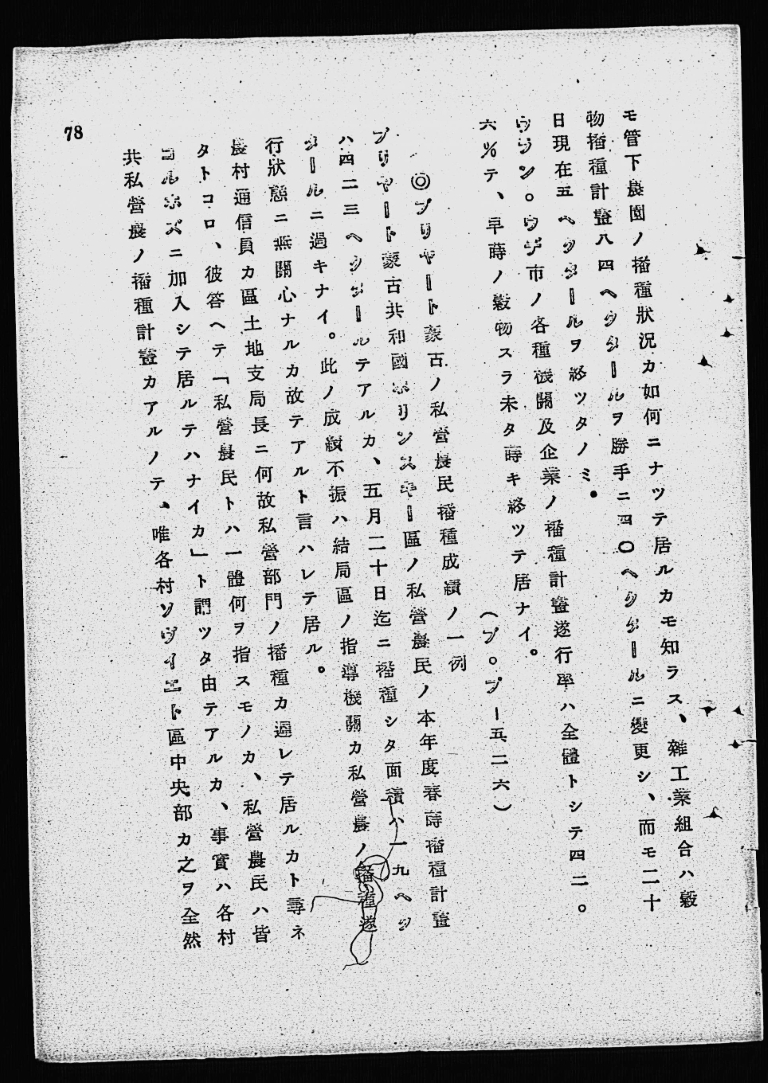 モ管下農園ノ播種狀況カ如何ニナツテ居ルカモ知ラス、雜工業組合ハ穀
物播種計畫八四ヘクタールヲ勝手ニ四〇ヘクタールニ變更シ、而モ二十
日現在五ヘクタールヲ終ツタノミ。
ウラン。ウデ市ノ各種機關及企業ノ播種計畫遂行率ハ全體トシテ四二。
六％テ、早蒔ノ穀物スラ未タ蒔キ終ツテ居ナイ。
(ブ。プー五二六)
◎ブリヤート蒙古ノ私營農民播種成績ノ一例
ブリヤート蒙古共和國ホリンスキー區ノ私營農民ノ本年度春蒔播種計畫
ハ四二三ヘクタールテアルカ、五月二十日迄ニ播種シタ面積ハ一九ヘク
タールニ過キナイ。此ノ成績不振ハ結局區ノ指導機關カ私營農ノ播種遂
行狀態ニ無關心ナルカ故テアルト言ハレテ居ル。
農村通信員カ區土地支局長ニ何故私營部門ノ播種カ遲レテ居ルカト尋ネ
タトコロ、彼答ヘテ「私營農民トハ一體何ヲ指スモノカ、私營農民ハ皆
コルホズニ加入シテ居ルテハナイカ」ト謂ツタ由テアルカ、事實ハ各村
共私營農ノ播種計畫カアルノテ、唯各村ソヴィエト區中央部カ之ヲ全然
78